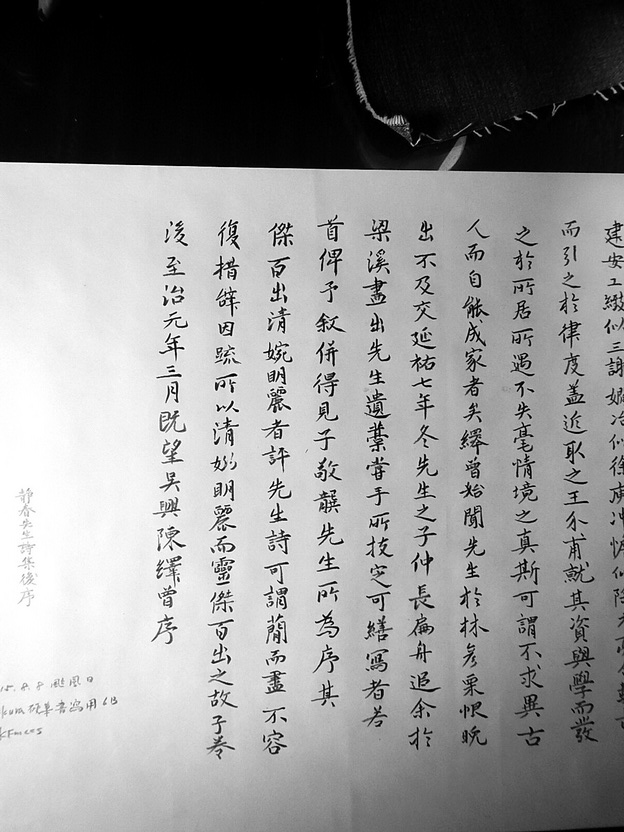 建安工緻似三謝嫺冶似徐庾沖憺似陶
而引之於律度蓋近取之王介甫就其資與學而發
之於所居所遇不失毫情境之真斯可謂不求異古
人而自能成家者矣繹曾始聞先生於林彥栗恨晚
出不及交延祐七年冬先生之子仲長扁舟過余於
梁溪盡出先生遺藁嘗手所技定可繕寫者若
首俾予敘併得見子敬龔先生所為序其
傑百出清婉明麗者評先生詩可謂蕳而盡不容
復措辭因疏所以清婉明麗而靈傑百出之故于卷
後至治元年三月既望吳興陳繹曾序
靜春先生詩集後序
15.8.8 颱風日
硬筆書寫用 6B